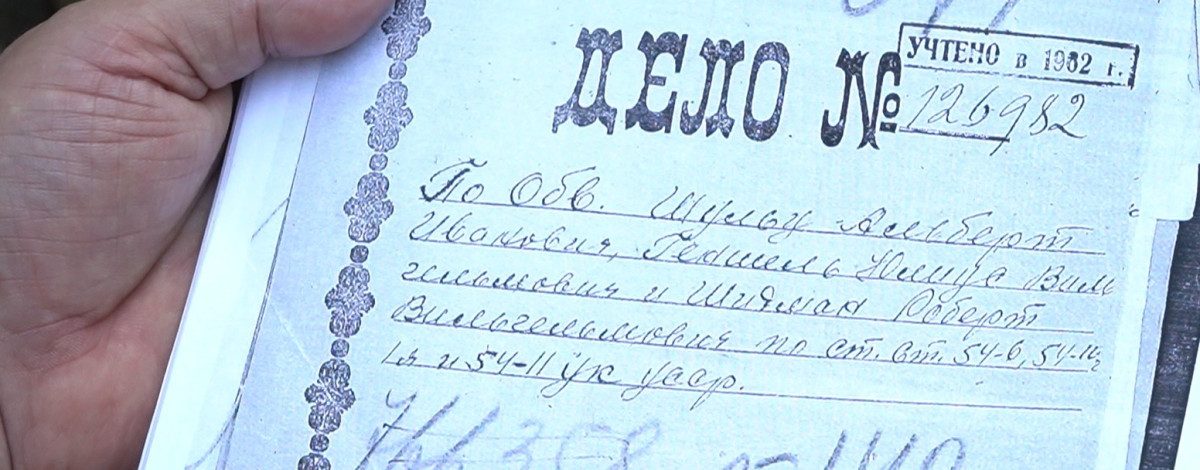 ДЕЛО №
УЧТЕНО в 1962 г.
126982
По Обв. Шульц Альберт
Ивановия, Геншель Юлиуа Вил
гельмовия и Шидман Роберт
Вильгельмовия по ст. ст. 54-6, 54-10
ч и 54-11 УК УССР.